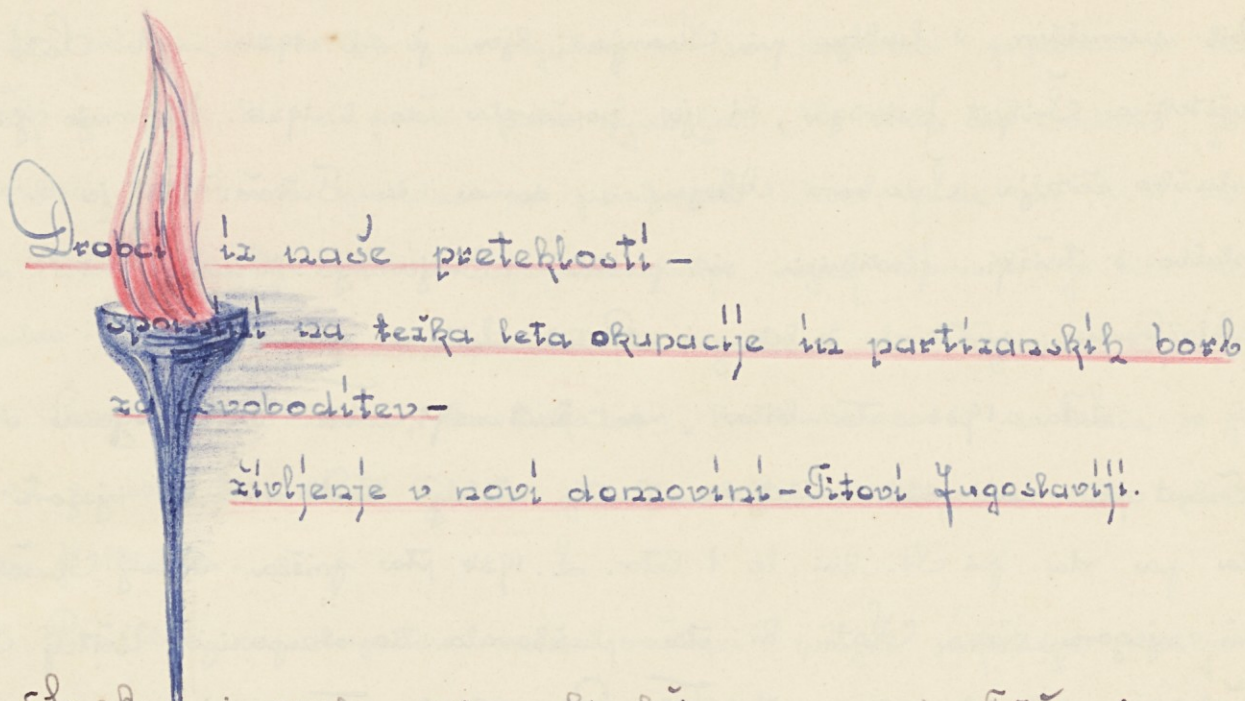 Drobci iz naše preteklosti -
spomini na težka leta okupacije in partizanskih borb
za osvoboditev -
življenje v novi domovini - Titovi Jugoslaviji.